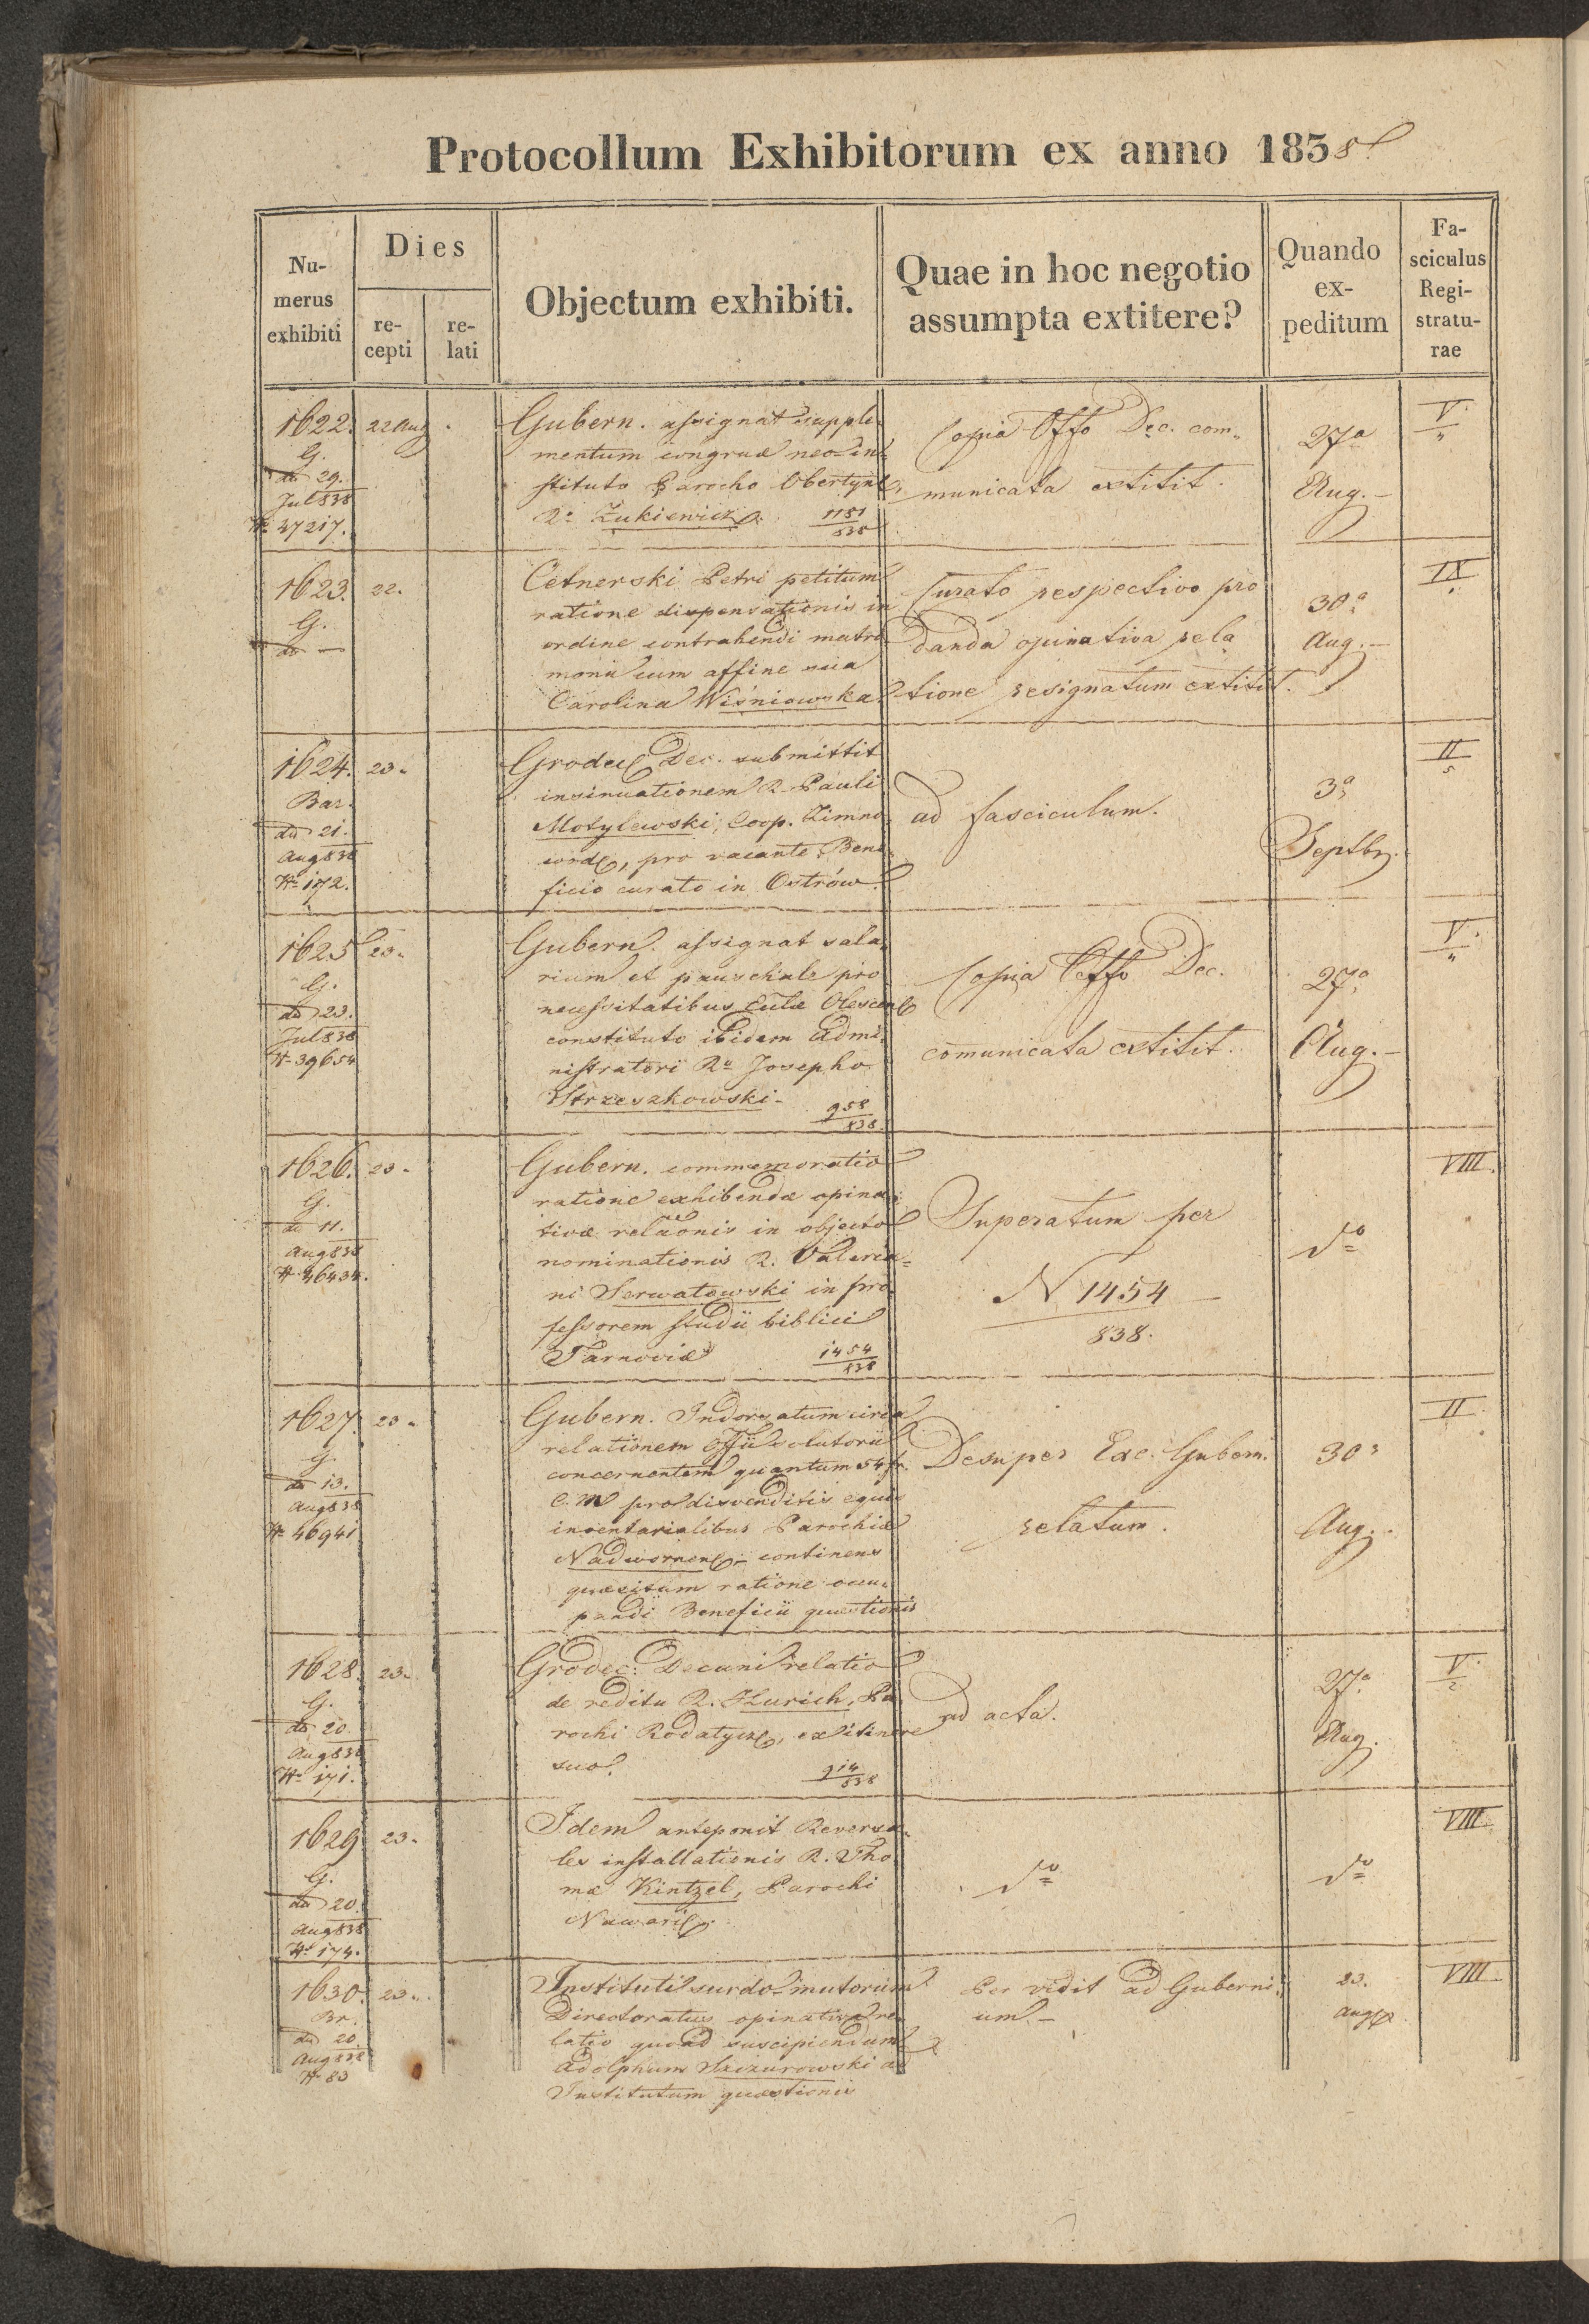 Protocollum Exhibitorum ex anno 1838
Nu-
merus
exhibiti
Dies
re-
cepti
re-
lati
Objectum exhibiti.
Quae in hoc negotio
assumpta extitere?
Quando
ex-
peditum
Fa-
sciculus
Regi-
stratu-
rae
1622.
G.
dto 29.
Jul 838
N. 47217.
22 Aug.
Gubern. assignat supple-
mentum congruae neo-in-
stituto Parocho Obertyn.
Ro Zukiewicz.
1151
838
Copia Offo Dec. com-
municata extitit.
27a
Aug.-
V.
"
1623.
G.
dto —
22.
Cetnerski Petri petitum
ratione dispensationis in
ordine contrahendi matri-
monii cum affine sua
Carolina Wiśniowska
Curato respectivo pro
danda opinativa rela-
tione resignatum extitit.
30a
Aug.-
IX
1624.
Bar.
dto 21.
Aug 838
No 172.
23.
Grodec. Dec. submittit
insinuationem R. Pauli
Motylewski, Coop. Zimno-
vod., pro vacante Bene-
ficio curato in Ostrów.
ad fasciculum.
3a
Septbr.
II
5
1625
G.
dto 23.
Jul 838
N. 39654
23.
Gubern. assignat sala-
rium et pauschale pro
necessitatibus Cultae Olescen.
constituto ibidem Admi-
nistratori Ro Josepho
Strzeszkowski.
958
838.
Copia Offo Dec.
comunicata extitit.
27a
Aug.-
V.
"
1626.
G.
dto 11.
Aug 838
N. 46434.
23.
Gubern. commemoratio
ratione exhibendae opina-
tivae relaonis in objecto
nominationis R. Valeria-
ni Serwatowski in pro-
fessorem studii biblici
Tarnoviae
1454
838
Superatum per
N 1454
838.
do
VIII.
1627.
G.
dto 13.
Aug 838
No 46941
23.
Gubern. Indorsatum circa
relationem Offii solutorii
concernentem quantum 54 fr.
C.M. pro disvenditis equis
inventarialibus Parochiae
Nadwornen. continens
quaesitum ratione occu-
pandi Beneficii quaestionis
Desuper Exc. Gubern.
relatum.
30a
Aug.
II
1628.
G.
dto 20.
Aug 838
No 171.
23.
Grodec: Decani relatio
de reditu R. Hurich, Pa-
rochi Rodatycz., ex itinere
suo.
914
838
ad acta.
27a
Aug.
V.
2
1629
G.
dto 20.
Aug 838
No 174.
23.
Idem anteponit Reversa-
les installationis R. Tho-
mae Kintzel, Parochi
Nawari.
do
do
VIII.
1630.
Br.
dto 20.
Aug 838
N. 83
23.
Instituti surdo-mutorum
Directoratus opinativa re-
latio quoad suscipiendum
Adolphum Szczurowski ad
Institutum quaestionis
Per vidit ad Guberni-
um.-
23.
Aug.
VIII.